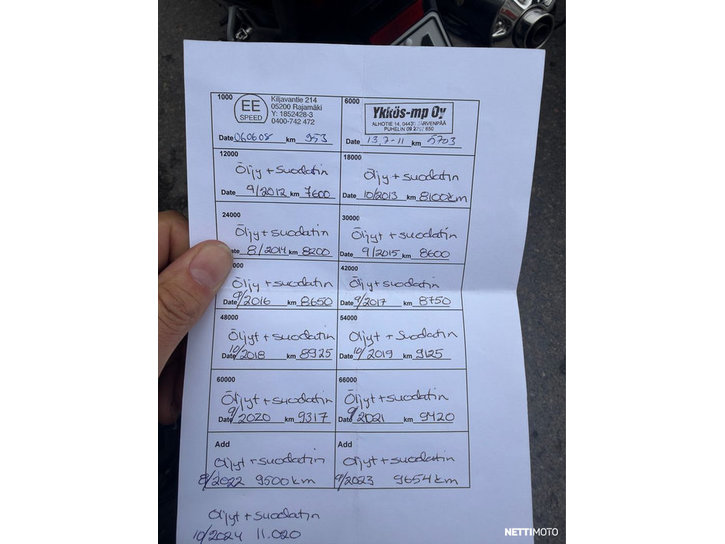 1000
EE
SPEED
Kiljavantie 214
05200 Rajamäki
Y: 1852428-3
0400-742 472
Date 060608 km 953
6000
Ykkös-mp Oy
ALHOTIE 14, 04430 JÄRVENPÄÄ
Date 13.7-11 km 5703
12000
Öljy + suodatin
Date 9/2012 km 7600
18000
Öljy + suodatin
Date 10/2013 km 8100km
24000
Öljy + suodatin
8/2014 km 8200
30000
Öljyt + suodatin
Date 9/2015 km 8600
Öljyt + suodatin
Date 9/2016 km 8650
42000
Öljy + suodatin
Date 9/2017 km 8750
48000
Öljyt + suodatin
Date 10/2018 km 8925
54000
Öljyt + Suodatin
Date 10/2019 km 9125
60000
Öljyt + suodatin
Date 9/2020 km 9317
66000
Öljyt + suodatin
Date 9/2021 km 9420
Add
Öljyt + suodatin
8/2022 9500km
Add
Öljyt + suodatin
9/2023 9654 km
Öljyt + suodatin
10/2024 11.020
NETTIMOTO